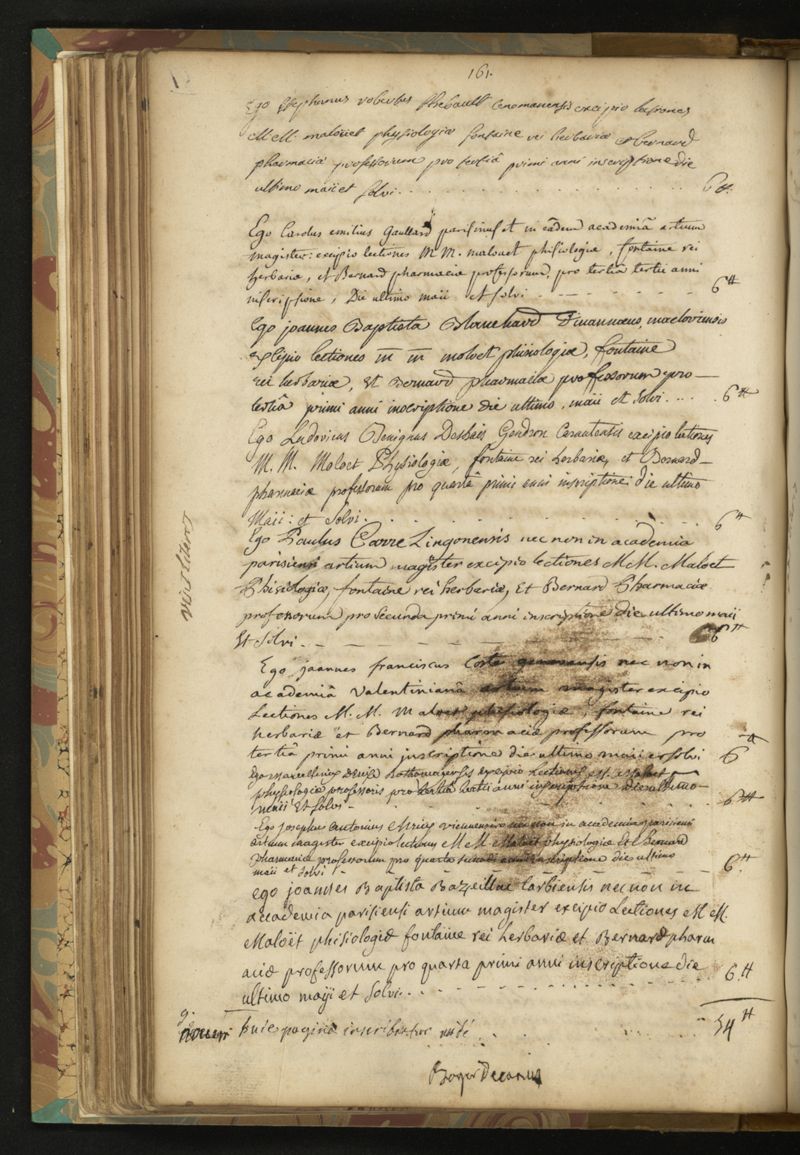 161.
Ego Stephanus robertus Thebault Cenomanensis excipio lectiones
M.M. malouet physiologiæ fontaine rei herbariæ et bernard
pharmaciæ professorum pro tertiâ primi anni inscriptione die
ultimo maii et solvi 6 ₶.
Ego Carolus emilius Gaullard parisinus et in eâdem academiâ artium
magister: excipio lectiones M M. malouet phisiologiæ, fontaine rei
herbariæ, et Bernard pharmaciæ professorum, pro tertiâ tertii anni
inscriptione, Die ultimo maii et solvi 6 ₶
Ego joannes Baptista Blanchard Dinannæus, macloviensis
excipio lectiones m m maloet phisiologiæ, fontaine
rei herbariæ, et Bernard pharmaciæ professorum pro
tertiâ primi anni inscriptione die ultimo, maii et solvi 6 ₶
Ego Ludovicus Benignus Desbois Gendron Carnutensis excipio lectiones
M. M. Maloet Physiologiæ, fontaine rei herbariæ, et Bernard
pharmaciæ professorum pro quartâ primi anni inscriptione die ultimo
Maii: et Solvi 6 ₶
Ego Paulus Carre Lingonensis nec non in academia
parisiensi artium magister excipio lectiones M M. Maloet
Phisiologiæ, fontaine rei herbariæ, Et Bernard Pharmaciæ
professorum pro Secunda primi anni inscriptione die ultimo maii
Et Solvi 6 ₶
Ego joannes franciscus Coste nec non in
academiâ Valentinianâ artium magister excipio
Lectiones M. M. Maloet phisiologiæ, fontaine rei
herbariæ et Bernard pharmaciæ professorum pro
tertiâ primi anni inscriptione die ultimo maii et solvi 6 ₶
Ego excipio Lectiones M. Maloet
physiologiæ professoris pro tertii anni inscriptione die ultimo
maii Et Solvi 6 ₶
Ego Josephus Antonius viennensis nec non in academia parisiensi
artium magister excipio lectiones M M Maloet physiologiæ Et Bernard
Pharmaciæ professorum pro quarta anni inscriptione die ultimo
maii et solvi 6 ₶
ego joannes Baptista Bazeillac tarbiensis nec non in
accademia parisiensi artium magister excipio Lectiones M M.
Maloët phisiologiæ fontaine rei herbariæ et Bernard pharm
aciæ professorum pro quarta primi anni inscriptione die
ultimo maji et solvi 6 ₶
9.
novem huic paginæ inscribuntur 54 ₶
Boyer Decanus